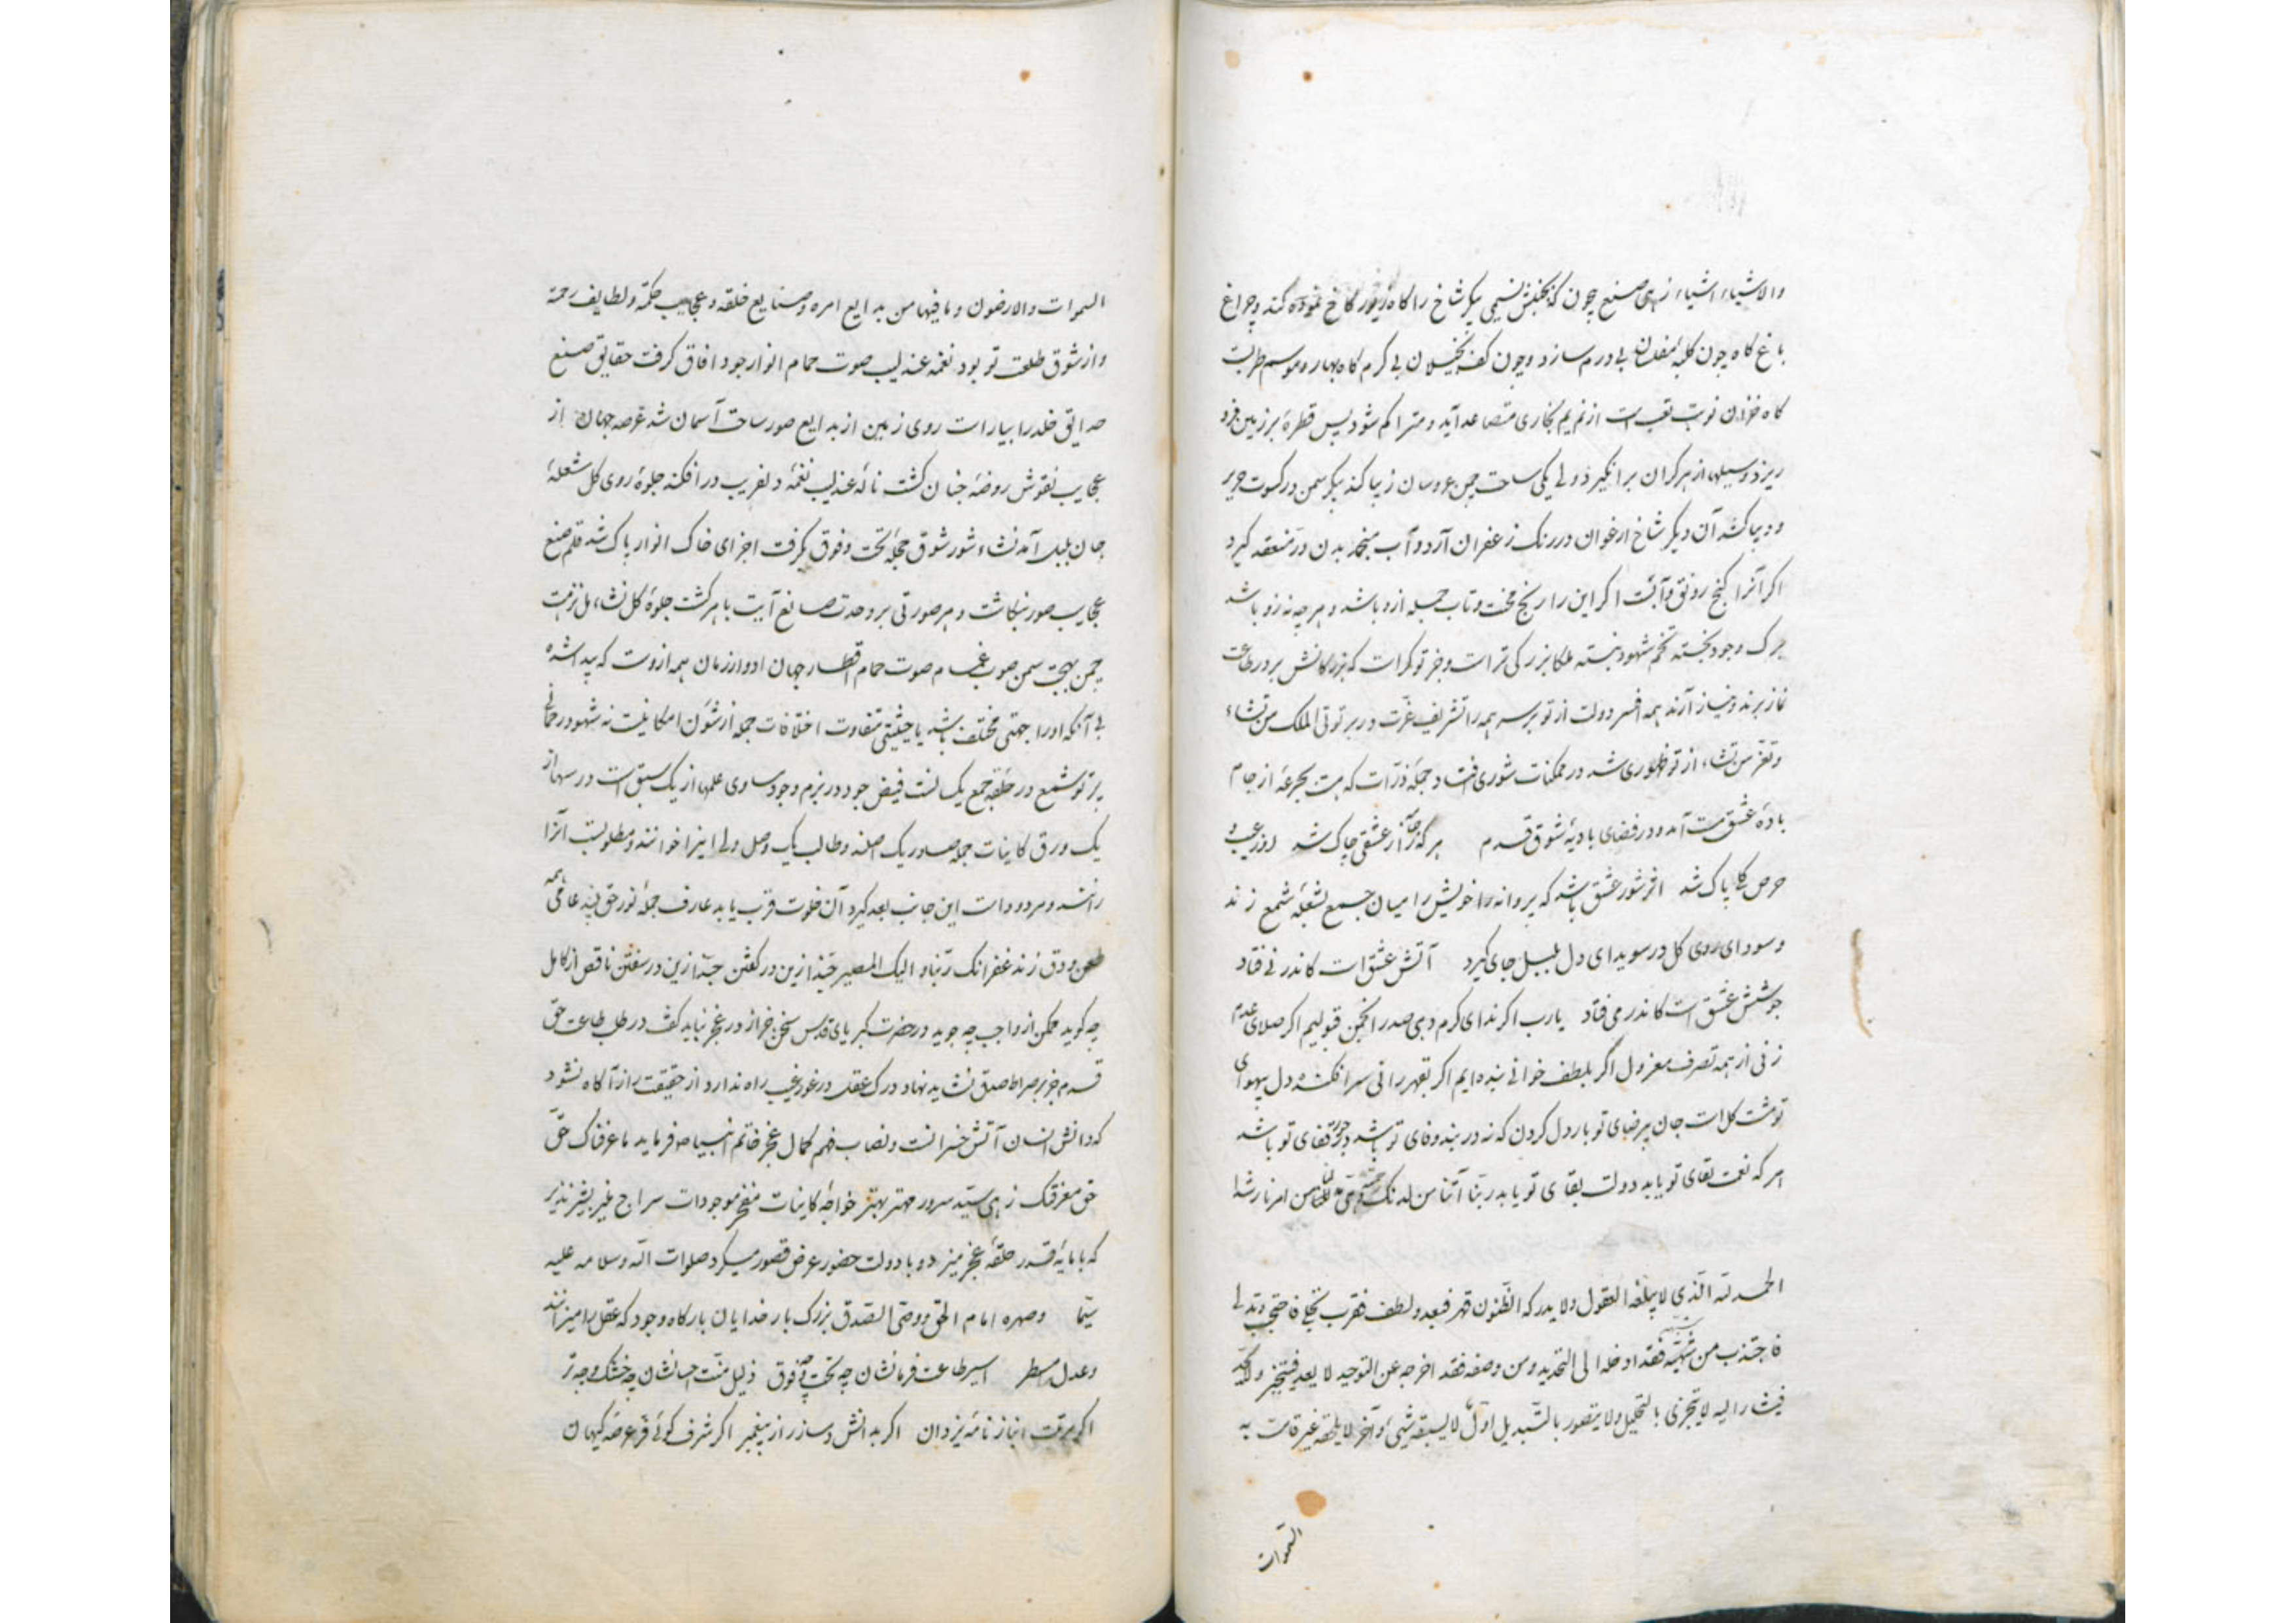 والاشیاء اشیاء زهی صنع بیچون که بجنبش نسیمی پیکر شاخ را کاه زیور کاخ نموده کند و چراغ
باغ کاه چون کلبه مفلسان بی درم سازد و چون کف بخیلان بی کرم کاه بهار و موسم طربست
کاه خزان نوبت تعبست از نم یم بخاری متصاعد آید و متراکم شود پس قطره بر زمین فرو
ریزد و سیلها از هر کران برانگیزد ولی یکی ساحت چمن عروسان زیبا کند پیکر سمن در کسوت حریر
و دیبا کشد آن دیگر شاخ ارغوان در رنک زعفران آرد و آب منجمد بدن در منعقد گیرد
اگر آنرا گنج رونق و آبست اگر این را رنج محنت و تاب جمله ازو باشد و هر چه نه زو باشد
برک وجود نجسته تخم شهود نبسته ملکا بزرکی تراست و جز تو کراست که بزرکانش بر در طاعت
نماز برند و نیاز آرند همه افسر دولت از تو بر سر همه را تشریف عزت در بر توتی الملک من تشاء
و تعز من تشاء از تو ظهوری شد در ممکنات شوری افتاد جمله ذرات که مست بجرعه از جام
باده عشق مست آمد و در فضای بادیه شوق قدم هر که را جامه از عشقی چاک شد او ز عیب و
حرص کلی پاک شد اثر شور عشق باشد که پروانه را خویش را میان جمع بشعله شمع زند
و سودای روی کل در سویدای دل بلبل جای گیرد آتش عشق است کاندر نی فتاد
جوشش عشق است کاندر می فتاد یارب اگر ندای کرم دهی صدر انجمن قبولیم اگر صلای عدم
زنی از همه تصرف معزول اگر بلطف خوانی بنده ایم اگر بقهر رانی سرافکنده دل بهوای
تو مشت کل است جان برضای تو بار دل کردن که نه در بند وفای تو باشد قفای تو باشد
هر که نعمت بقای تو یابد دولت بقای تو یابد ربنا آتنا من لدنک رحمة وهیئ لنا من امرنا رشدا
الحمد لله الذی لا یبلغه العقول ولا یدرکه الظنون قهر فبعد ولطف فقرب تجلی فاحتجب وتدلی
فاجتذب من شبهه فقد ادخله الی التحدید ومن وصفه فقد اخرجه عن التوحید لا یعد فیتجز ولا یحد
فیشار الیه لا یتجزی بالتحلیل ولا یتصور بالتبدیل اول لا یسبقه شیئ و آخر لا یلحقه غیر قامت به
السموات
السموات والارضون وما فیها من بدایع امره وصنایع خلقه وعجایب حکمته ولطایف رحمته
و از شوق طلعت تو بود نغمه عندلیب صوت حمام انوار جود افاق گرفت حقایق صنع
حدایق خلد را بیاراست روی زمین از بدایع صور ساحت آسمان شد عرصه جهان از
عجایب نقوش روضه جنان کشت ناله عندلیب نغمه دلفریب در افکند جلوه روی کل شعله
جان بلبل آمد نشاء شور شوق جمله تحت و فوق بگرفت اجزای خاک انوار پاک شد قلم صنع
عجایب صور بنکاشت و هر صورتی بر وحدت صانع آیت باهر کشت جلوه کل نشاء مل نزهت
چمن بهجت سمن صوب غمام صوت حمام اقطار جهان ادوار زمان همه ازوست که پیدا شده
بی آنکه او را جهتی مختلف باشد یا حیثیتی متفاوت اختلافات جمله از شئون امکانیست نه شهود رحمانی
پرتو شمع در حلقه جمع یکسانست فیض جود در بزم وجود مساوی علمها از یک سبق است درسها از
یک ورق کاینات جمله صادر یک اصلند و طالب یک وصل ولی اینرا خوانند و مطلوبست آنرا
رانند و مردود است این جانب بعد گیرد آن خلوت قرب یابد عارف جمله نور حق بیند عامی همه
طعن و دق زند غفرانک ربنا والیک المصیر چند ازین در کفتن چند ازین در سفتن ناقص از کامل
چه کوید ممکن از واجب چه جوید در حضرت کبریای قدس سخن جز از در عجز نباید کفت در طلب طاعت حق
قدم جز بر صراط صدق نشاید نهاد درک عقل در غور غیب راه ندارد از حقیقت راز آگاه نشود
که دانش انسان آتش خسرانست و نصاب فهم کمال عجز خاتم انبیا ص فرماید ما عرفناک حق
حق معرفتک زهی سید سرور مهتر بهتر خواجه کاینات مفخر موجودات سراج منیر بشیر نذیر
که با پایه قدر حلقه عجز میزد و با دولت حضور عرض قصور میکرد صلوات الله وسلامه علیه
سیما وصهره امام الحق ووصی الصدق بزرک بار خدایان بارکاه وجود که عقل را میزانند
و عدل را مسطر اسیر طاعت فرمانشان چه تحت و چه فوق ذلیل منت احسانشان چه خشک و چه تر
اگر برتبت انباز نامه یزدان اگر بدانش دمساز راز پیغمبر اگر شرف کوئی فر عرصه کیهان